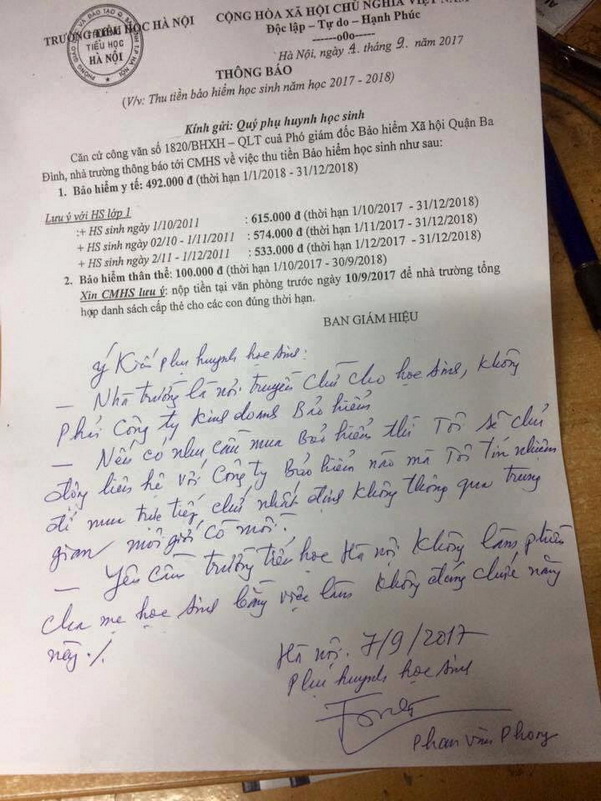 TRƯỜNG TIỂU HỌC HÀ NỘI
CỘNG HÒA XÃ HỘI CHỦ NGHĨA VIỆT NAM
Độc lập – Tự do – Hạnh Phúc
------o0o------
TIỂU HỌC
HÀ NỘI
Hà Nội, ngày 4 tháng 9 năm 2017
THÔNG BÁO
(V/v: Thu tiền bảo hiểm học sinh năm học 2017 - 2018)
Kính gửi: Quý phụ huynh học sinh
Căn cứ công văn số 1820/BHXH – QLT cuả Phó giám đốc Bảo hiểm Xã hội Quận Ba
Đình, nhà trường thông báo tới CMHS về việc thu tiền Bảo hiểm học sinh như sau:
1. Bảo hiểm y tế: 492.000 đ (thời hạn 1/1/2018 - 31/12/2018)
Lưu ý với HS lớp 1
:+ HS sinh ngày 1/10/2011 : 615.000 đ (thời hạn 1/10/2017 - 31/12/2018)
+ HS sinh ngày 02/10 - 1/11/2011 : 574.000 đ (thời hạn 1/11/2017 - 31/12/2018)
+ HS sinh ngày 2/11 - 1/12/2011 : 533.000 đ (thời hạn 1/12/2017 - 31/12/2018)
2. Bảo hiểm thân thể: 100.000 đ (thời hạn 1/10/2017 - 30/9/2018)
Xin CMHS lưu ý: nộp tiền tại văn phòng trước ngày 10/9/2017 để nhà trường tổng
hợp danh sách cấp thẻ cho các con đúng thời hạn.
BAN GIÁM HIỆU
Ý Kiến phụ huynh học sinh:
– Nhà trường là nơi truyền chữ cho học sinh, không
phải Công ty kinh doanh Bảo hiểm
– Nếu có nhu cầu mua Bảo hiểm thì Tôi sẽ chủ
động liên hệ với Công ty Bảo hiểm nào mà Tôi Tín nhiệm
để mua trực tiếp chứ nhất định không thông qua trung
gian môi giới cò mồi.
– Yêu cầu trường tiểu học Hà nội không làm phiền
cha mẹ học sinh bằng việc làm không đúng chức năng
này ./.
Hà nội. 7/9/2017
Phụ huynh học sinh
Phan Văn Phong